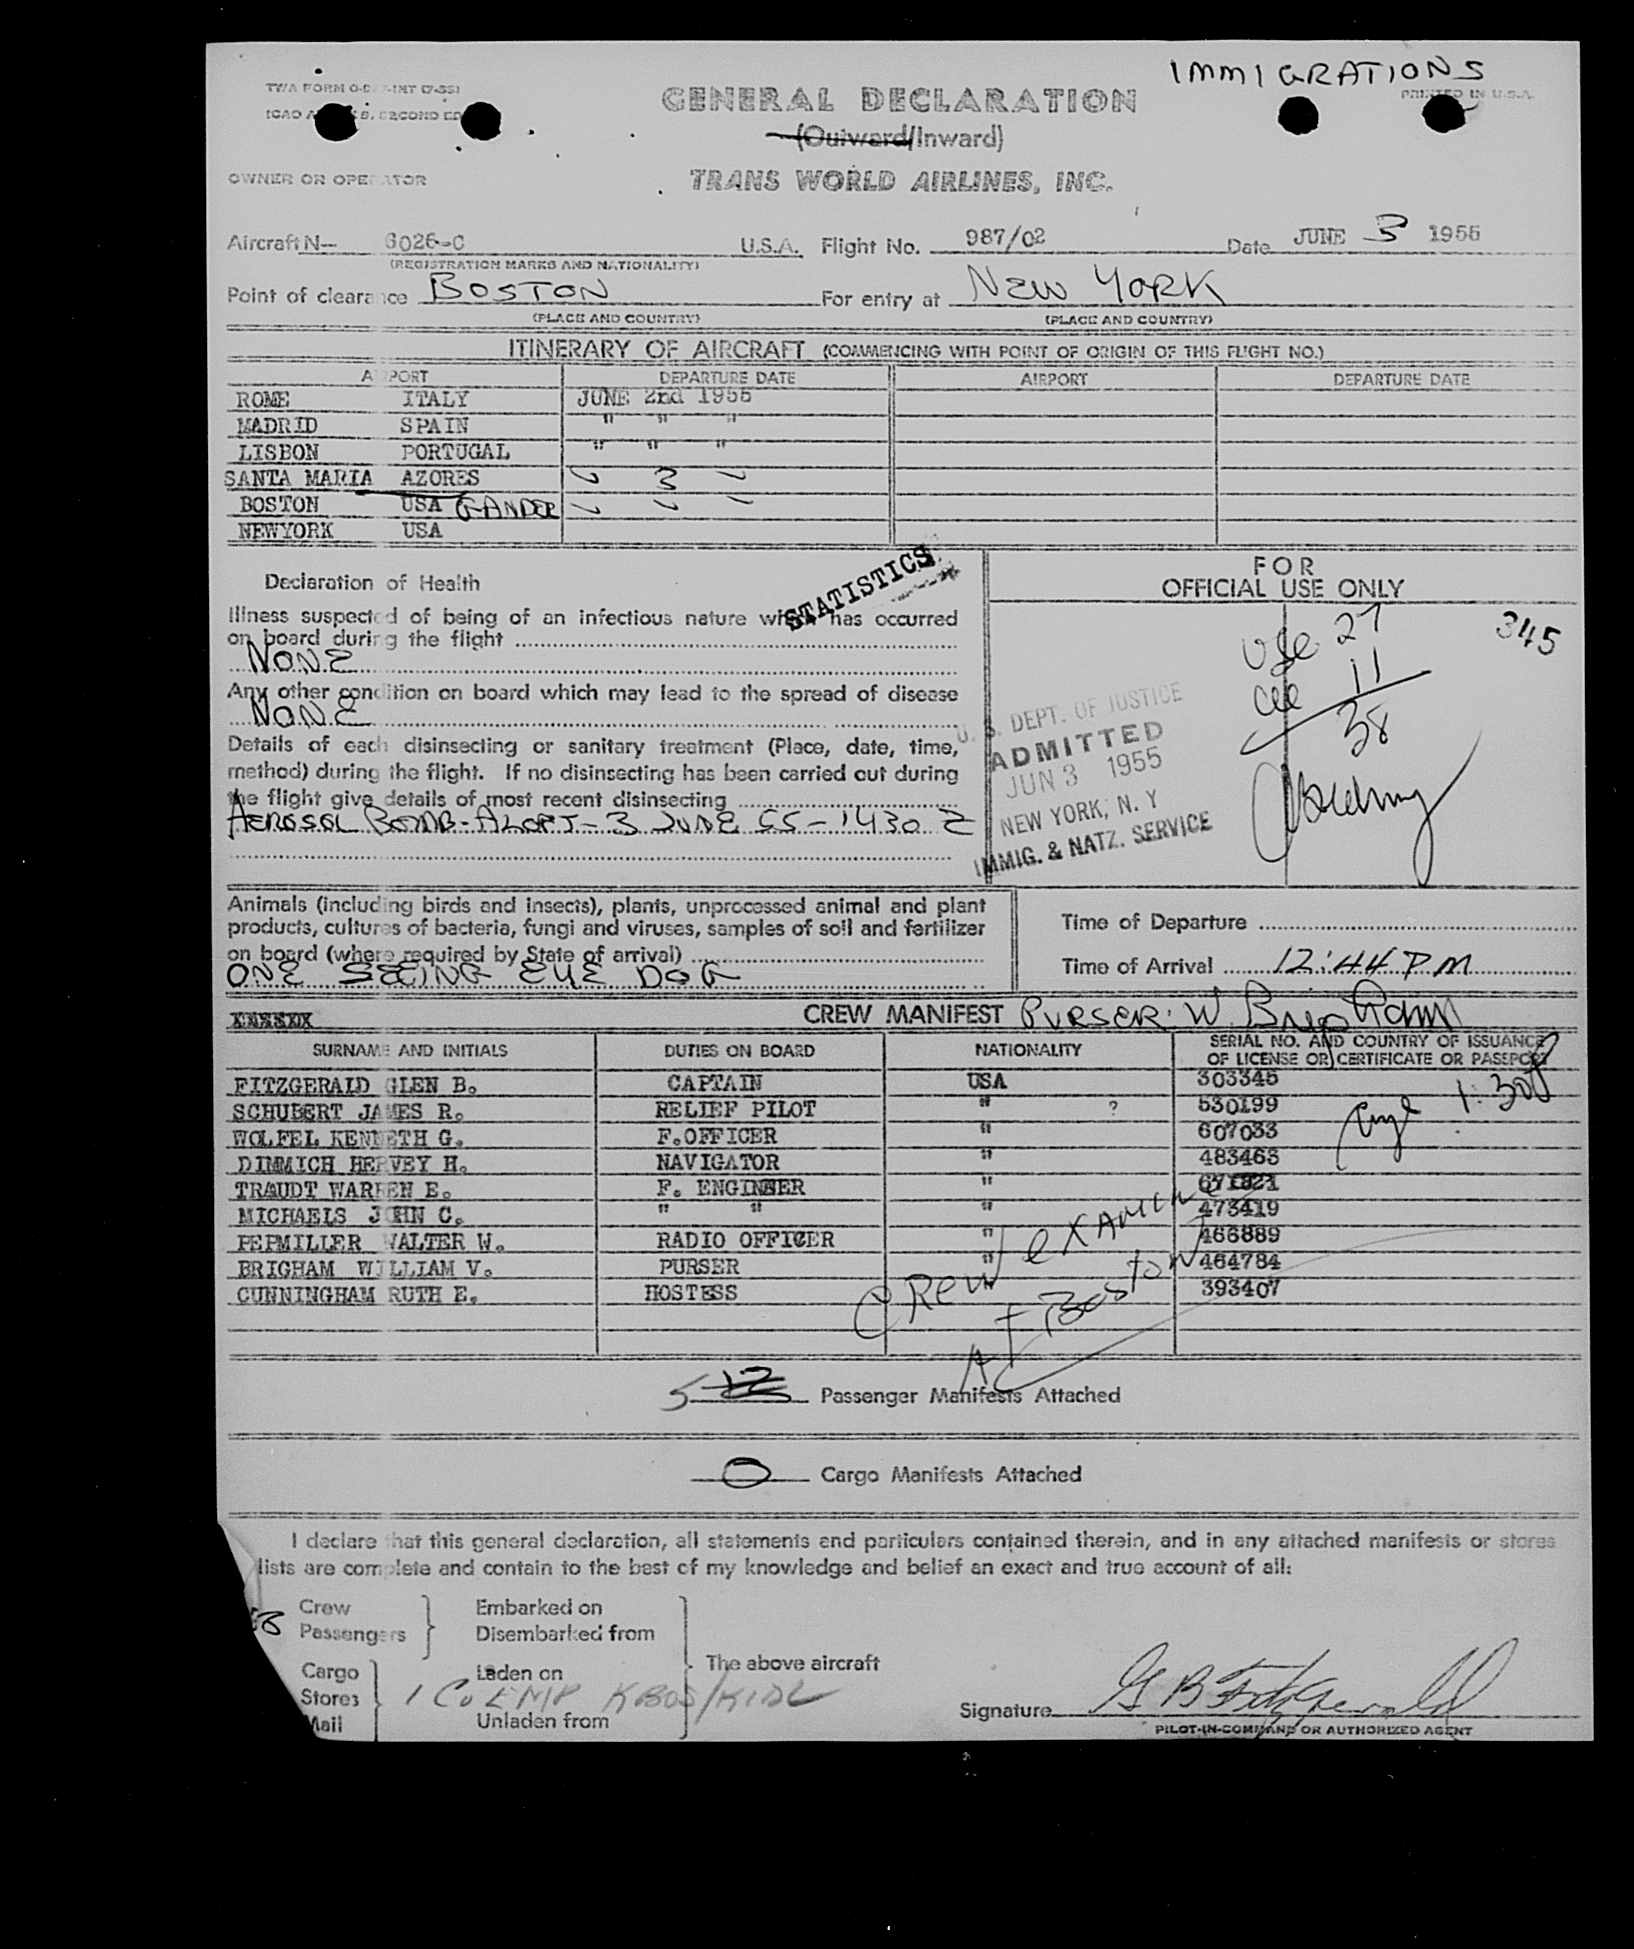 IMMIGRATIONS
GENERAL DECLARATION
PRINTED IN U.S.A.
(Outward/Inward)
OWNER OR OPERATOR TRANS WORLD AIRLINES, INC.
Aircraft N- 6026-C U.S.A. Flight No. 987/02 Date JUNE 3 1955
(REGISTRATION MARKS AND NATIONALITY)
Point of clearance BOSTON For entry at NEW YORK
(PLACE AND COUNTRY) (PLACE AND COUNTRY)
ITINERARY OF AIRCRAFT (COMMENCING WITH POINT OF ORIGIN OF THIS FLIGHT NO.)
AIRPORT DEPARTURE DATE AIRPORT DEPARTURE DATE
ROME ITALY JUNE 2nd 1955
MADRID SPAIN " " "
LISBON PORTUGAL " " "
SANTA MARIA AZORES " 3 "
BOSTON USA GANDER " " "
NEWYORK USA
STATISTICS
FOR
OFFICIAL USE ONLY
Declaration of Health
Illness suspected of being of an infectious nature which has occurred
on board during the flight
NONE
Any other condition on board which may lead to the spread of disease
NONE
Details of each disinsecting or sanitary treatment (Place, date, time,
method) during the flight. If no disinsecting has been carried out during
the flight give details of most recent disinsecting
AEROSOL BOMB-ALOFT-3 JUNE 55-1430 Z
27
345
11
38
U. S. DEPT. OF JUSTICE
ADMITTED
JUN 3 1955
NEW YORK, N. Y
IMMIG. & NATZ. SERVICE
Animals (including birds and insects), plants, unprocessed animal and plant
products, cultures of bacteria, fungi and viruses, samples of soil and fertilizer
on board (where required by State of arrival)
ONE SEEING EYE DOG
Time of Departure
Time of Arrival 12:44 PM
CREW MANIFEST PURSER: W. Brigham
SURNAME AND INITIALS DUTIES ON BOARD NATIONALITY SERIAL NO. AND COUNTRY OF ISSUANCE
OF LICENSE OR CERTIFICATE OR PASSPORT
FITZGERALD GLEN B. CAPTAIN USA 303345
SCHUBERT JAMES R. RELIEF PILOT " ? 530199
WOLFEL KENNETH G. F.OFFICER " 607033
DIMMICH HERVEY H. NAVIGATOR " 483463
TRAUDT WARREN E. F. ENGINEER "
MICHAELS JOHN C. " " " 473419
PEPMILLER WALTER W. RADIO OFFICER " 466889
BRIGHAM WILLIAM V. PURSER " 464784
CUNNINGHAM RUTH E. HOSTESS 393407
1:30
CREW EXAMINED
AT Boston
5 12 Passenger Manifests Attached
0 Cargo Manifests Attached
I declare that this general declaration, all statements and particulars contained therein, and in any attached manifests or stores
lists are complete and contain to the best of my knowledge and belief an exact and true account of all:
Crew Embarked on
Passengers Disembarked from
The above aircraft
Cargo Laden on
Stores 1 Co EMP KBOS/KIDL
Mail Unladen from
Signature G B Fitzgerald
PILOT-IN-COMMAND OR AUTHORIZED AGENT